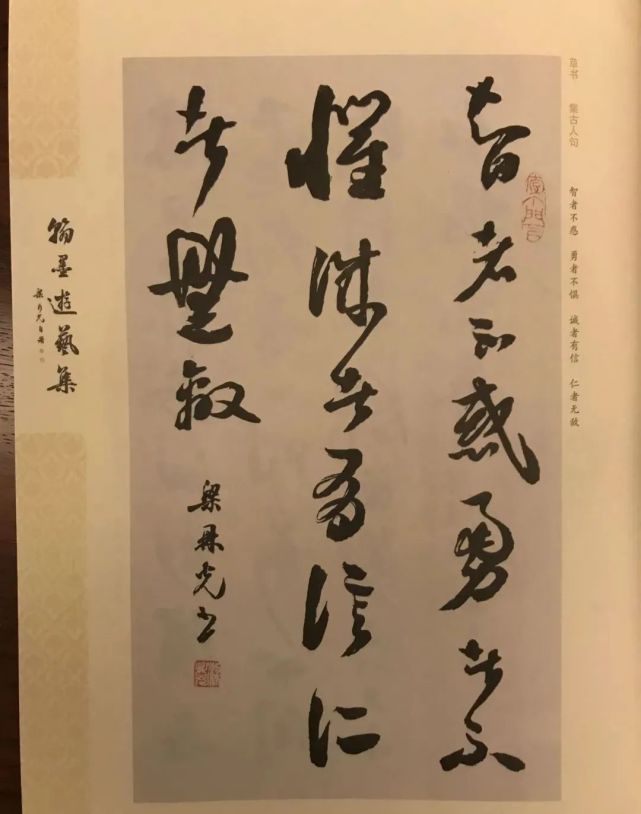 草书 集古人句 智者不惑 勇者不惧 诚者有信 仁者无敌
智者不惑勇者不
懼誠者有信仁
者無敵
梁鼎光书
翰墨遊藝集